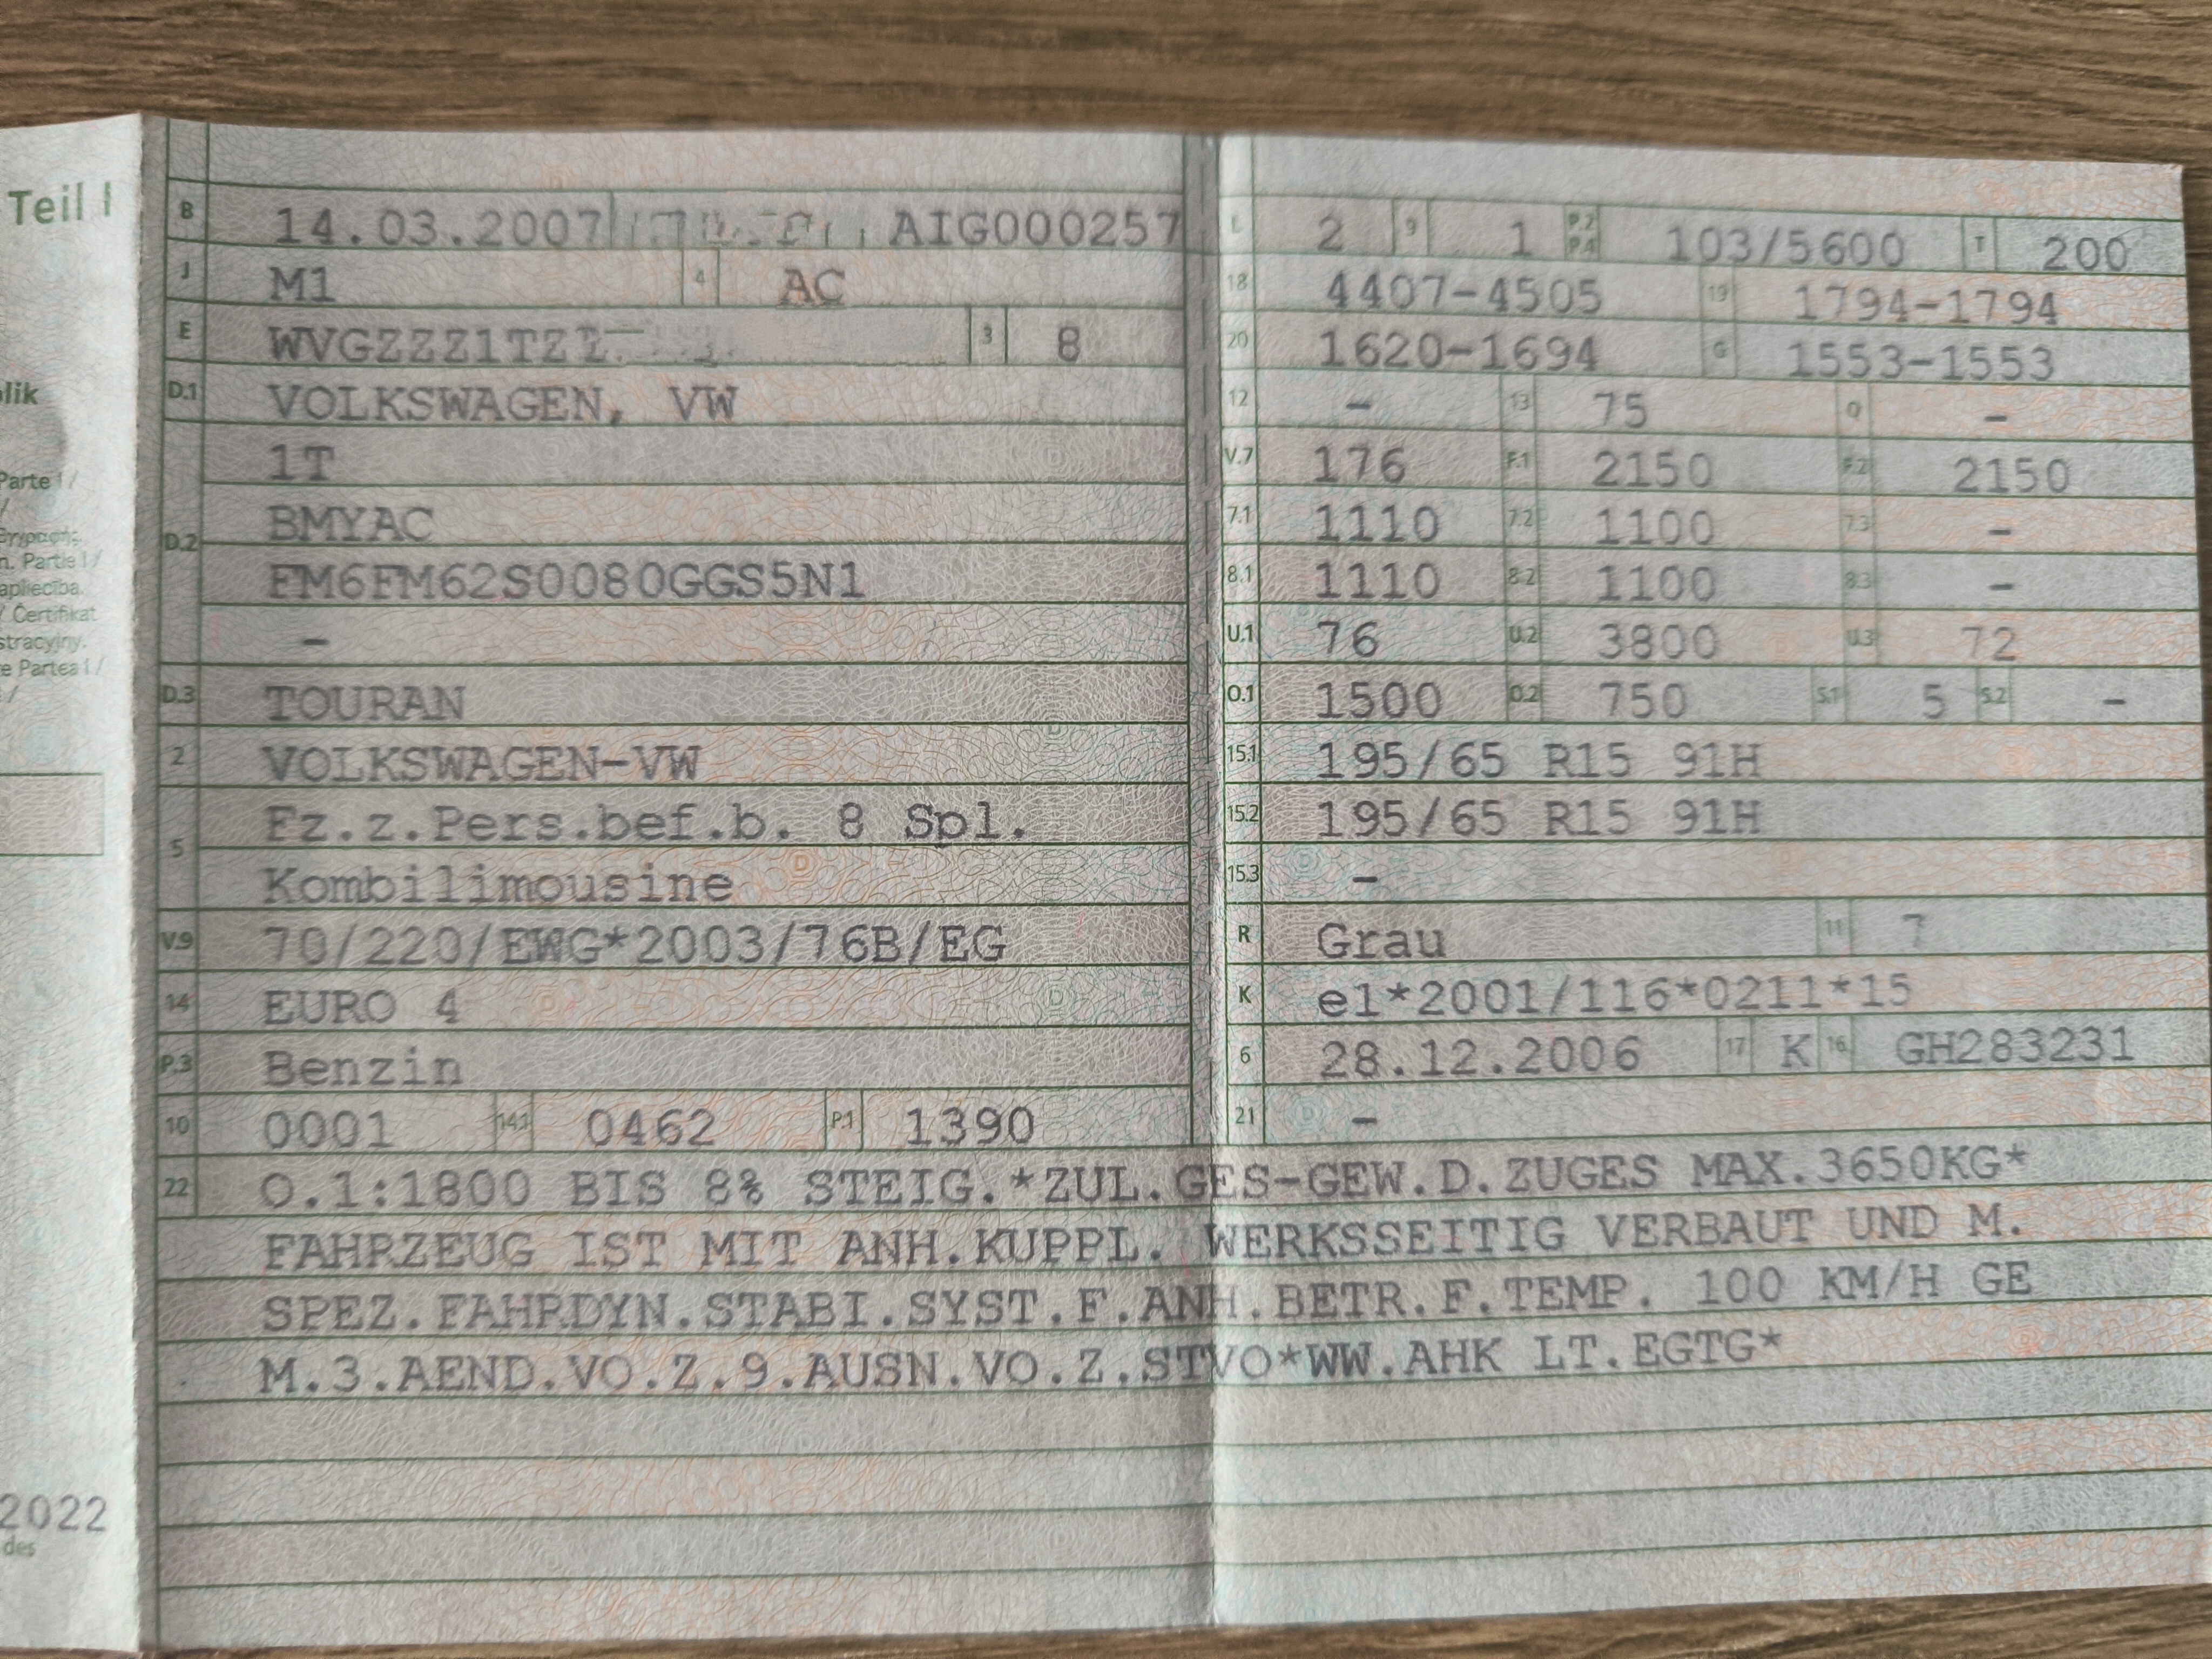 Teil I
B 14.03.2007 AIG000257
J M1 4 AC
E WVGZZZ1TZ 3 8
D.1 VOLKSWAGEN, VW
1T
BMYAC
D.2
FM6FM62S0080GGS5N1
-
D.3 TOURAN
2 VOLKSWAGEN-VW
Fz.z.Pers.bef.b. 8 Spl.
5
Kombilimousine
V.9 70/220/EWG*2003/76B/EG
14 EURO 4
P.3 Benzin
10 0001 14.1 0462 P.1 1390
L 2 9 1 P.2 P.4 103/5600 T 200
18 4407-4505 19 1794-1794
20 1620-1694 G 1553-1553
12 - 13 75 Q -
V.7 176 F.1 2150 F.2 2150
7.1 1110 7.2 1100 7.3 -
8.1 1110 8.2 1100 8.3 -
U.1 76 U.2 3800 U.3 72
O.1 1500 O.2 750 S.1 5 S.2 -
15.1 195/65 R15 91H
15.2 195/65 R15 91H
15.3 -
R Grau 11 7
K e1*2001/116*0211*15
6 28.12.2006 17 K 16 GH283231
21 -
22 O.1:1800 BIS 8% STEIG.*ZUL.GES-GEW.D.ZUGES MAX.3650KG*
FAHRZEUG IST MIT ANH.KUPPL. WERKSSEITIG VERBAUT UND M.
SPEZ.FAHRDYN.STABI.SYST.F.ANH.BETR.F.TEMP. 100 KM/H GE
M.3.AEND.VO.Z.9.AUSN.VO.Z.STVO*WW.AHK LT.EGTG*
lik
Parte I /
n. Partie I /
apliecība.
/ Certifikat
stracyjny.
e Partea I /
2022
des